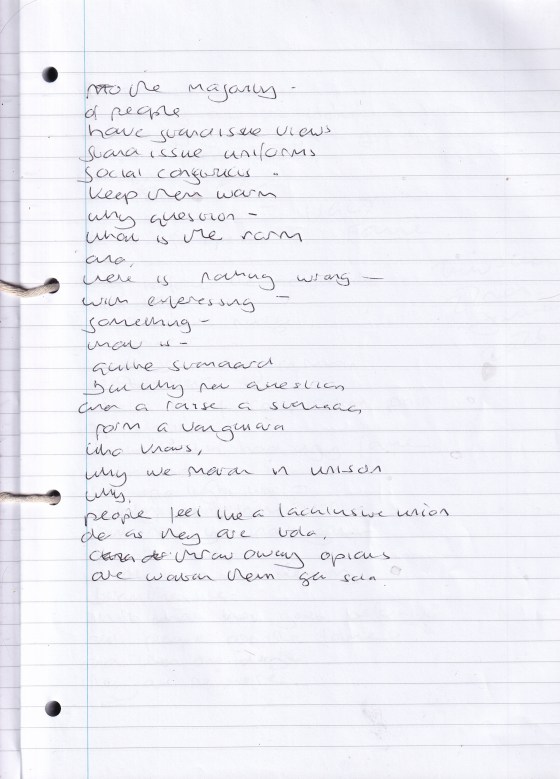 the majority -
of people
have standissue views
stand issue uniforms
social
keep them warm
why question -
what is the norm
and,
there is nothing wrong —
with expressing -
something -
that is -
quite standard
but why not question
and a raise a standard
form a vanguard
who knows,
why we march in unison
why,
people feel like a lacklustre union
do as they are told,
throw away opions
are watch them go